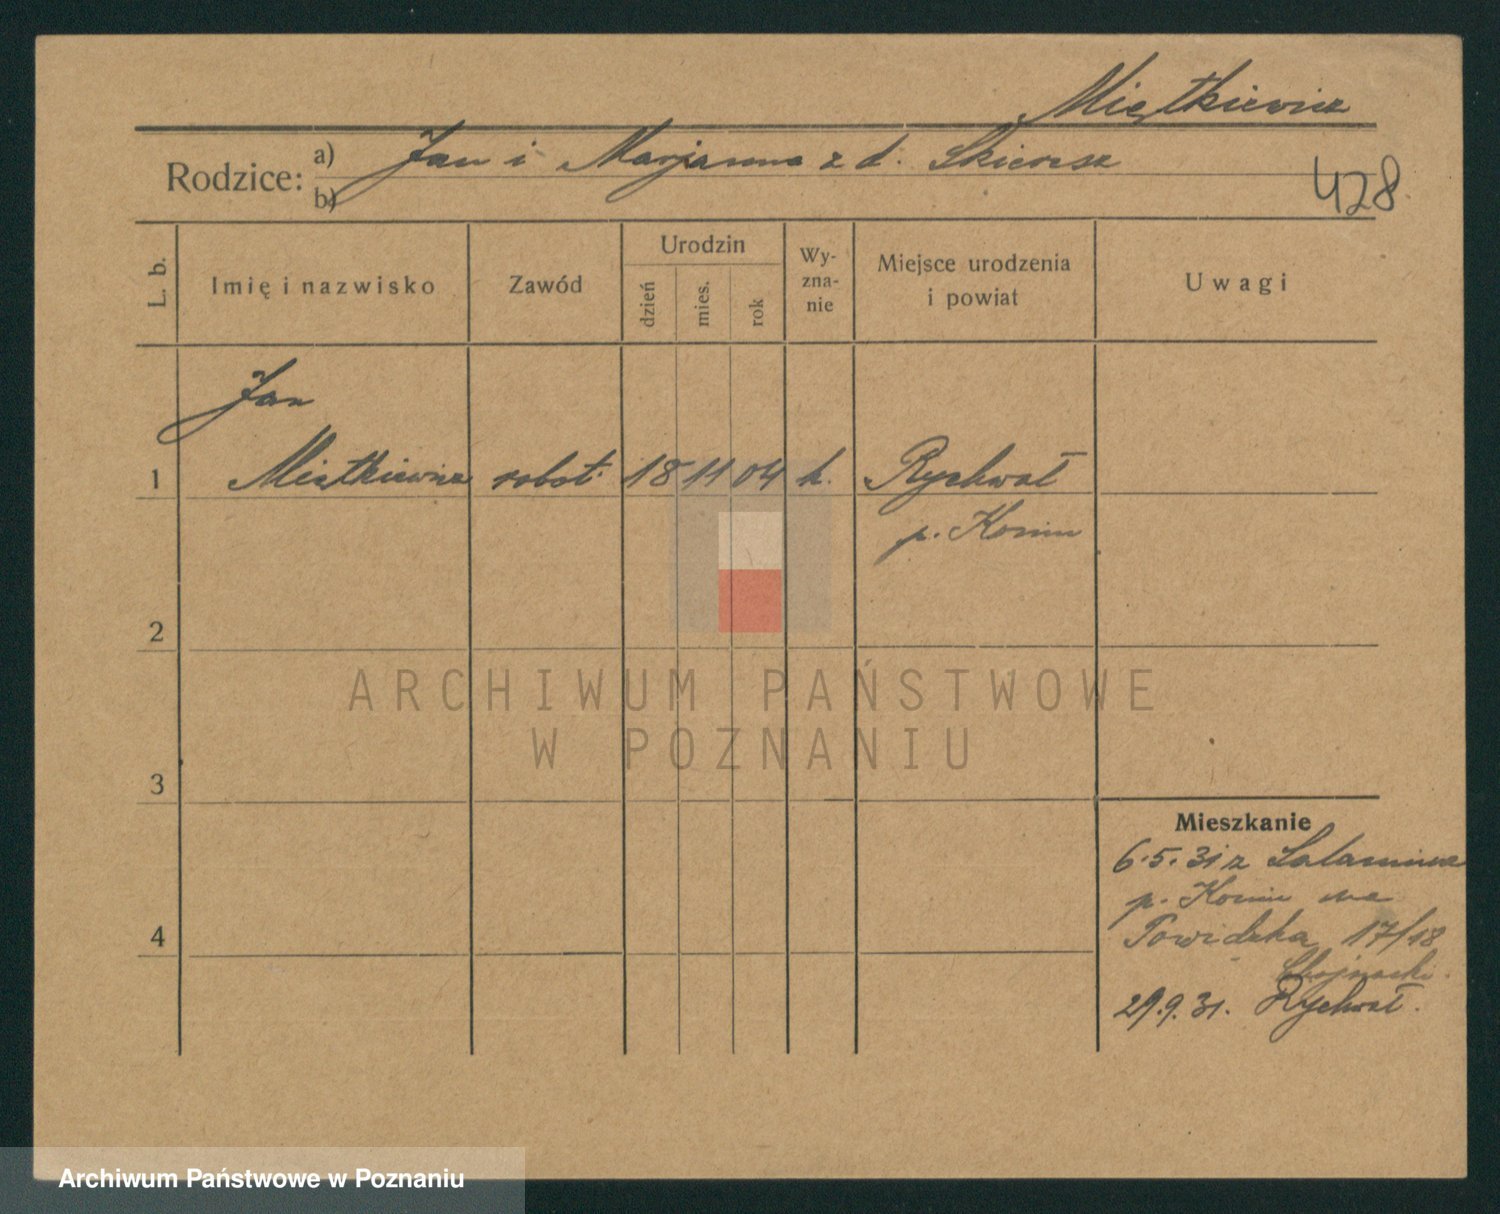 Miętkiewicz
Rodzice: a) Jan i Marjanna z d. Skiersz
b)
428
L. b.
Imię i nazwisko
Zawód
Urodzin
dzień
mies.
rok
Wy-
zna-
nie
Miejsce urodzenia
i powiat
Uwagi
Jan
1 Miętkiewicz robot. 18 11 04 k. Rychwał
p. Konin
2
ARCHIWUM PAŃSTWOWE
W POZNANIU
3
Mieszkanie
6.5.31 z
p. Konin na
4 Powidzka 17/18
29.9.31. Rychwał.
Archiwum Państwowe w Poznaniu